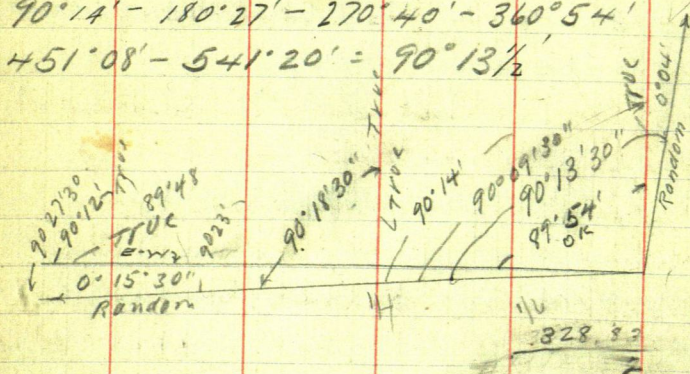 90°14' - 180°27' - 270°40' - 360°54'
451°08' - 541°20' = 90°13½
True
True
0°04'
Random
90°27'30
90°12'
True
True
89°48
E-W½
90°23'
90°18'30"
True
90°14'
90°09'30"
90°13'30"
89°54'
OK
0°15'30"
Random
¼
328.83